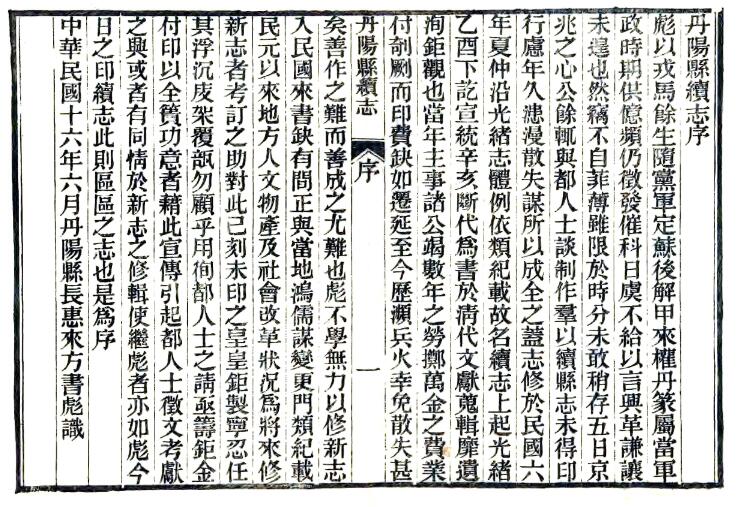 丹陽縣續志序
彪以戎馬餘生隨黨軍定蘇後解甲來權丹篆屬當軍
政時期供億頻仍徵發催科日虞不給以言興革謙讓
未遑也然竊不自菲薄雖限於時分未敢稍存五日京
兆之心公餘輒與都人士談制作羣以續縣志未得印
行慮年久漶漫散失謀所以成全之蓋志修於民國六
年夏仲沿光緒志體例依類紀載故名續志上起光緒
乙酉下訖宣統辛亥斷代為書於清代文獻蒐輯靡遺
洵鉅觀也當年主事諸公竭數年之勞擲萬金之費業
付剞劂而印費缺如遷延至今歷瀕兵火幸免散失甚
丹陽縣續志 序 一
矣善作之難而善成之尤難也彪不學無力以修新志
入民國來書缺有間正與當地鴻儒謀變更門類紀載
民元以來地方人文物產及社會改革狀況為將來修
新志者考訂之助對此已刻未印之皇皇鉅製寧忍任
其浮沉庋架覆瓿勿顧乎用徇都人士之請亟籌鉅金
付印以全簣功意者藉此宣傳引起都人士徵文考獻
之興或者有同情於新志之修輯使繼彪者亦如彪今
日之印續志此則區區之志也是為序
中華民國十六年六月丹陽縣長惠來方書彪識